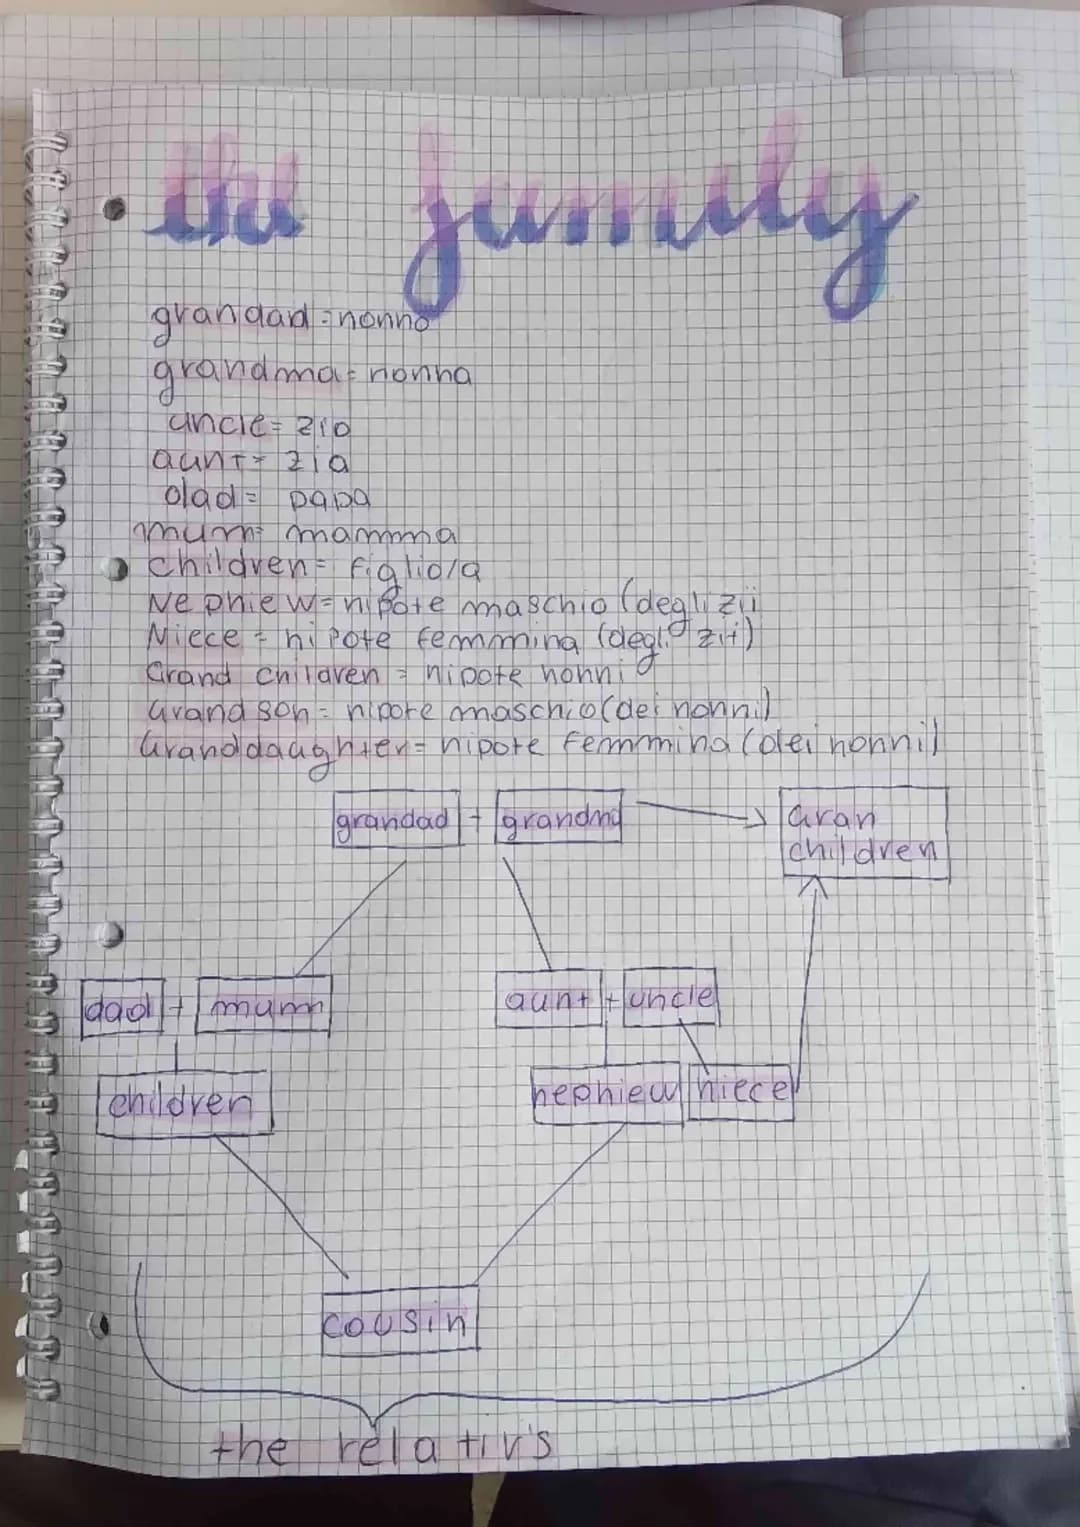 the family
grandad = nonno
grandma = nonna
uncle = zio
aunt = zia
dad = papa
mum = mamma
children = figlio/a
Nephiew = nipote maschio (degli zii
Niece = nipote femmina (degli zii)
Grand children = nipote nonni
Grand son = nipote maschio (dei nonni)
Granddaughter = nipote femmina (dei nonni)
grandad + grandma
Gran
children
dad + mum
aunt + uncle
children
nephiew niece
cousin
the relativ's